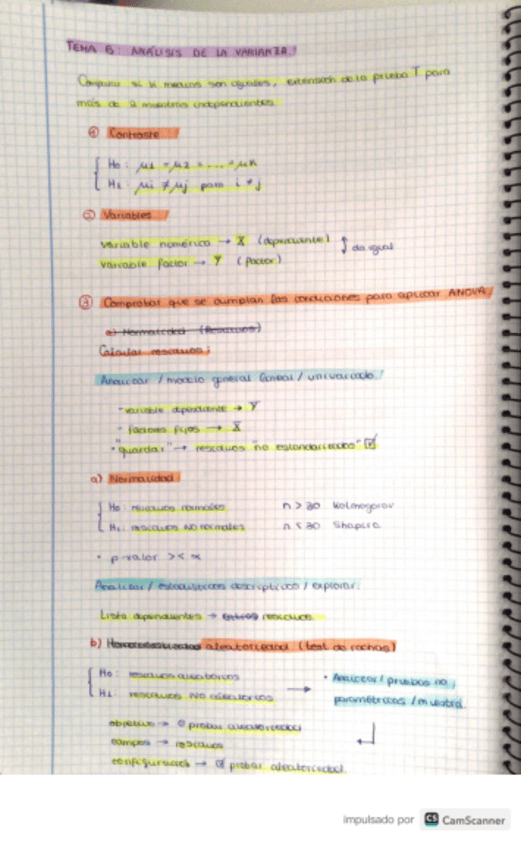 TEMA 6: ANÁLISIS DE LA VARIANZA.
Comparar si k medias son iguales, extensión de la prueba T para
más de 2 muestras independientes.
① Contraste
H0: μ1 = μ2 = .... = μk
H1: μi ≠ μj para i ≠ j
② Variables
variable numérica → X (dependiente) ↕ da igual
variable factor → Y (factor)
③ Comprobar que se cumplan las condiciones para aplicar ANOVA
a) Normalidad (Residuos)
Calcular residuos:
Analizar / modelo general lineal / univariado.
- variable dependiente → Y
- factores fijos → X
- "guardar" → residuos "no estandarizados" ☑
a) Normalidad
H0: residuos normales n > 30 Kolmogorov
H1: residuos NO normales n < 30 Shapiro
• p-valor >< α
Analizar / estadísticos descriptivos / explorar.
Lista dependientes → residuos.
b) aleatoriedad (test de rachas)
H0: residuos aleatorios → • Analizar / pruebas no
H1: residuos NO aleatorios paramétricas / 1 muestra.
objetivo → probar aleatoriedad
campos → residuos
configuración → ☑ probar aleatoriedad.
impulsado por CS CamScanner